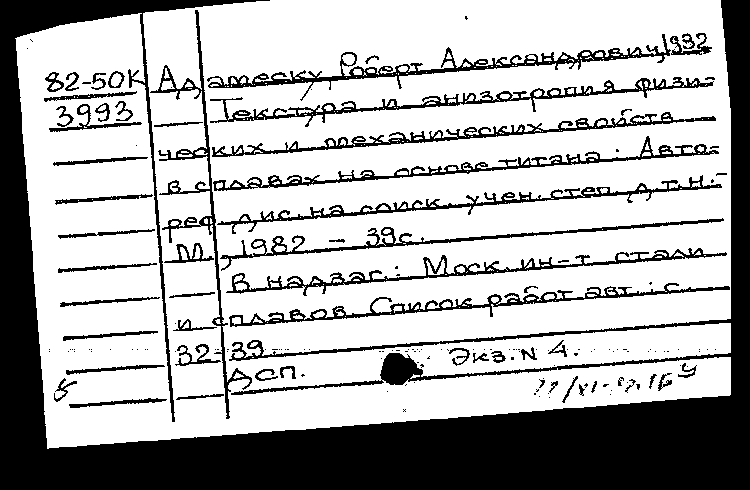 82-50К Адамеску, Роберт Александрович, 1932
3993 Текстура и анизотропия физи-
ческих и механических свойств
в сплавах на основе титана: Авто-
реф. дис. на соиск. учен. степ. д.т.н.-
М., 1982 - 39с.
В надзаг.: Моск. ин-т стали
и сплавов. Список работ авт.: с.
32-39.
ДСП. Экз. N 4.